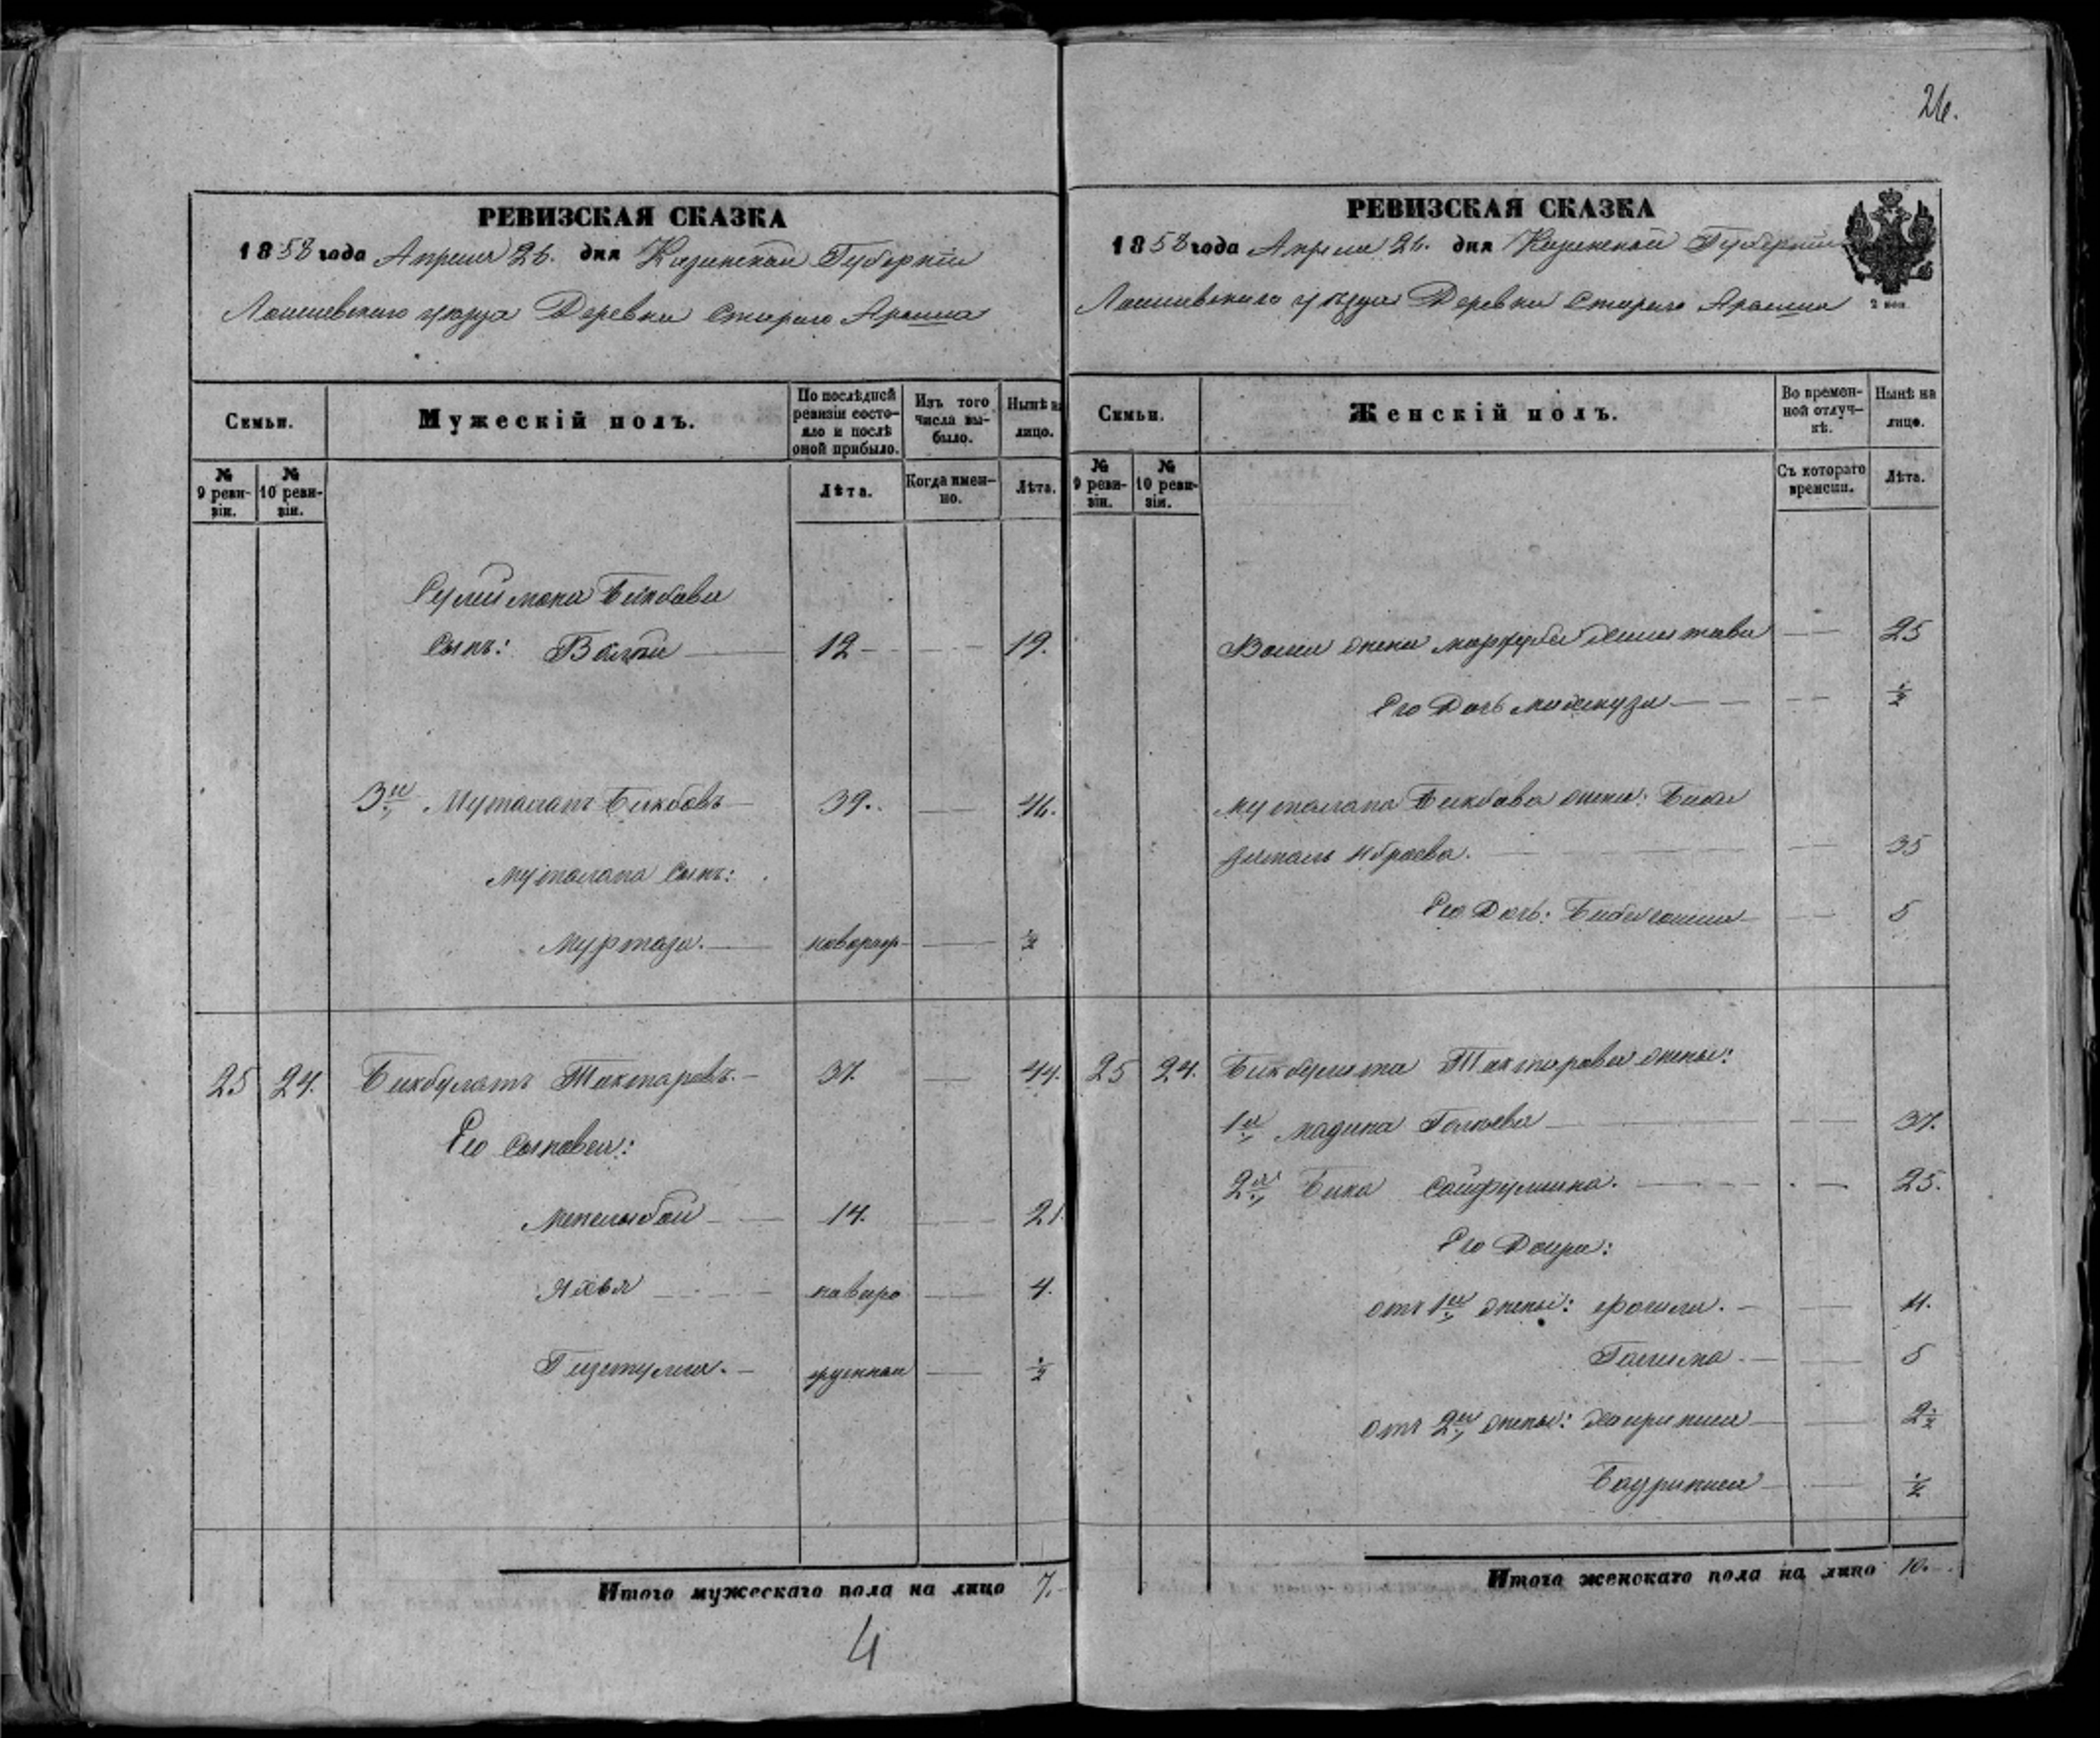 26.
РЕВИЗСКАЯ СКАЗКА
1858 года Апреля 26. дня Казанской Губерніи
Лаишевскаго уѣзда Деревни Стараго Арыша
Семьи.
Мужескій полъ.
По послѣдней ревизіи состояло и послѣ оной прибыло.
Изъ того числа выбыло.
Нынѣ на лицо.
№ 9 ревизіи.
№ 10 ревизіи.
Лѣта.
Когда именно.
Лѣта.
Сулеймана Бикбова
сынъ: Валей 12 19.
3й Муталапъ Бикбовъ 39. 46.
Муталапа сынъ:
Муртаза. новорож ½
25 24. Бикбулатъ Тахтаровъ. 37. 44.
Его сыновья:
Менглыбай 14. 21.
Яхья новоро 4.
Гизетулла. жденной ½
Итого мужескаго пола на лицо 7.
4
РЕВИЗСКАЯ СКАЗКА
1858 года Апреля 26. дня Казанской Губерніи
Лаишевскаго уѣзда Деревни Стараго Арыша
2 коп.
Семьи.
Женскій полъ.
Во временной отлучкѣ.
Нынѣ на лицо.
№ 9 ревизіи.
№ 10 ревизіи.
Съ котораго времени.
Лѣта.
Валея жена 25
Его дочь ½
Муталапа Бикбова жена: Биби
35
Его дочь: 5
25 24. Бикбулата Тахтарова жены:
1я Мадина 37.
2я Бика Сайфуллина. 25.
Его дочери:
отъ 1й жены: 11.
Галима. 5
отъ 2й жены: Хаирниса 2½
Бадриниса ½
Итого женскаго пола на лицо 10.